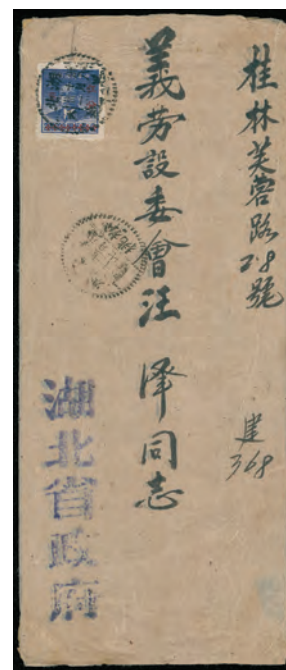 桂林芙蓉路28號
建
368
義劳設委會汪 泽同志
湖北省政府